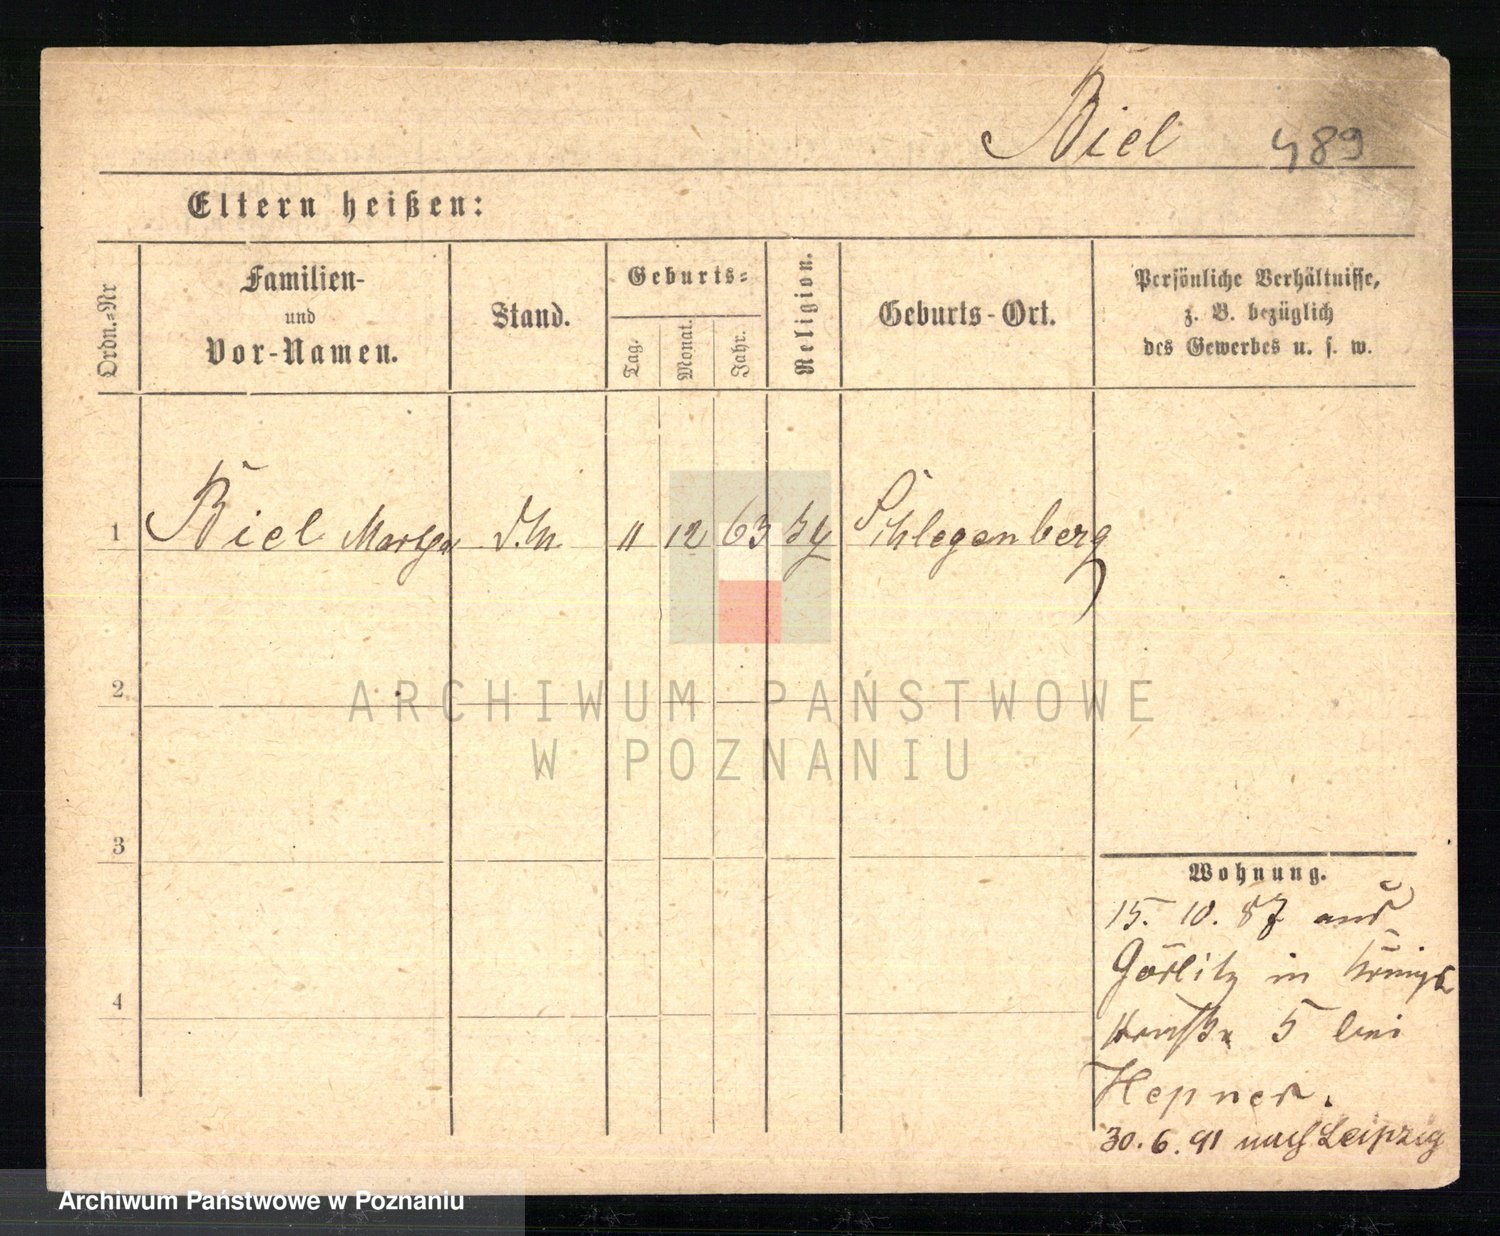 Biel 489
Eltern heißen:
Ordn.-Nr
Familien-
und
Vor-Namen.
Stand.
Geburts-
Tag.
Monat.
Jahr.
Religion.
Geburts-Ort.
Persönliche Verhältnisse,
z. B. bezüglich
des Gewerbes u. s. w.
1 Biel Martha 11 12 63
2
3
4
Wohnung.
15. 10. 87 aus
Görlitz in Königs
straße 5 bei
Hepner.
30. 6. 91 nach Leipzig
ARCHIWUM PAŃSTWOWE
W POZNANIU
Archiwum Państwowe w Poznaniu